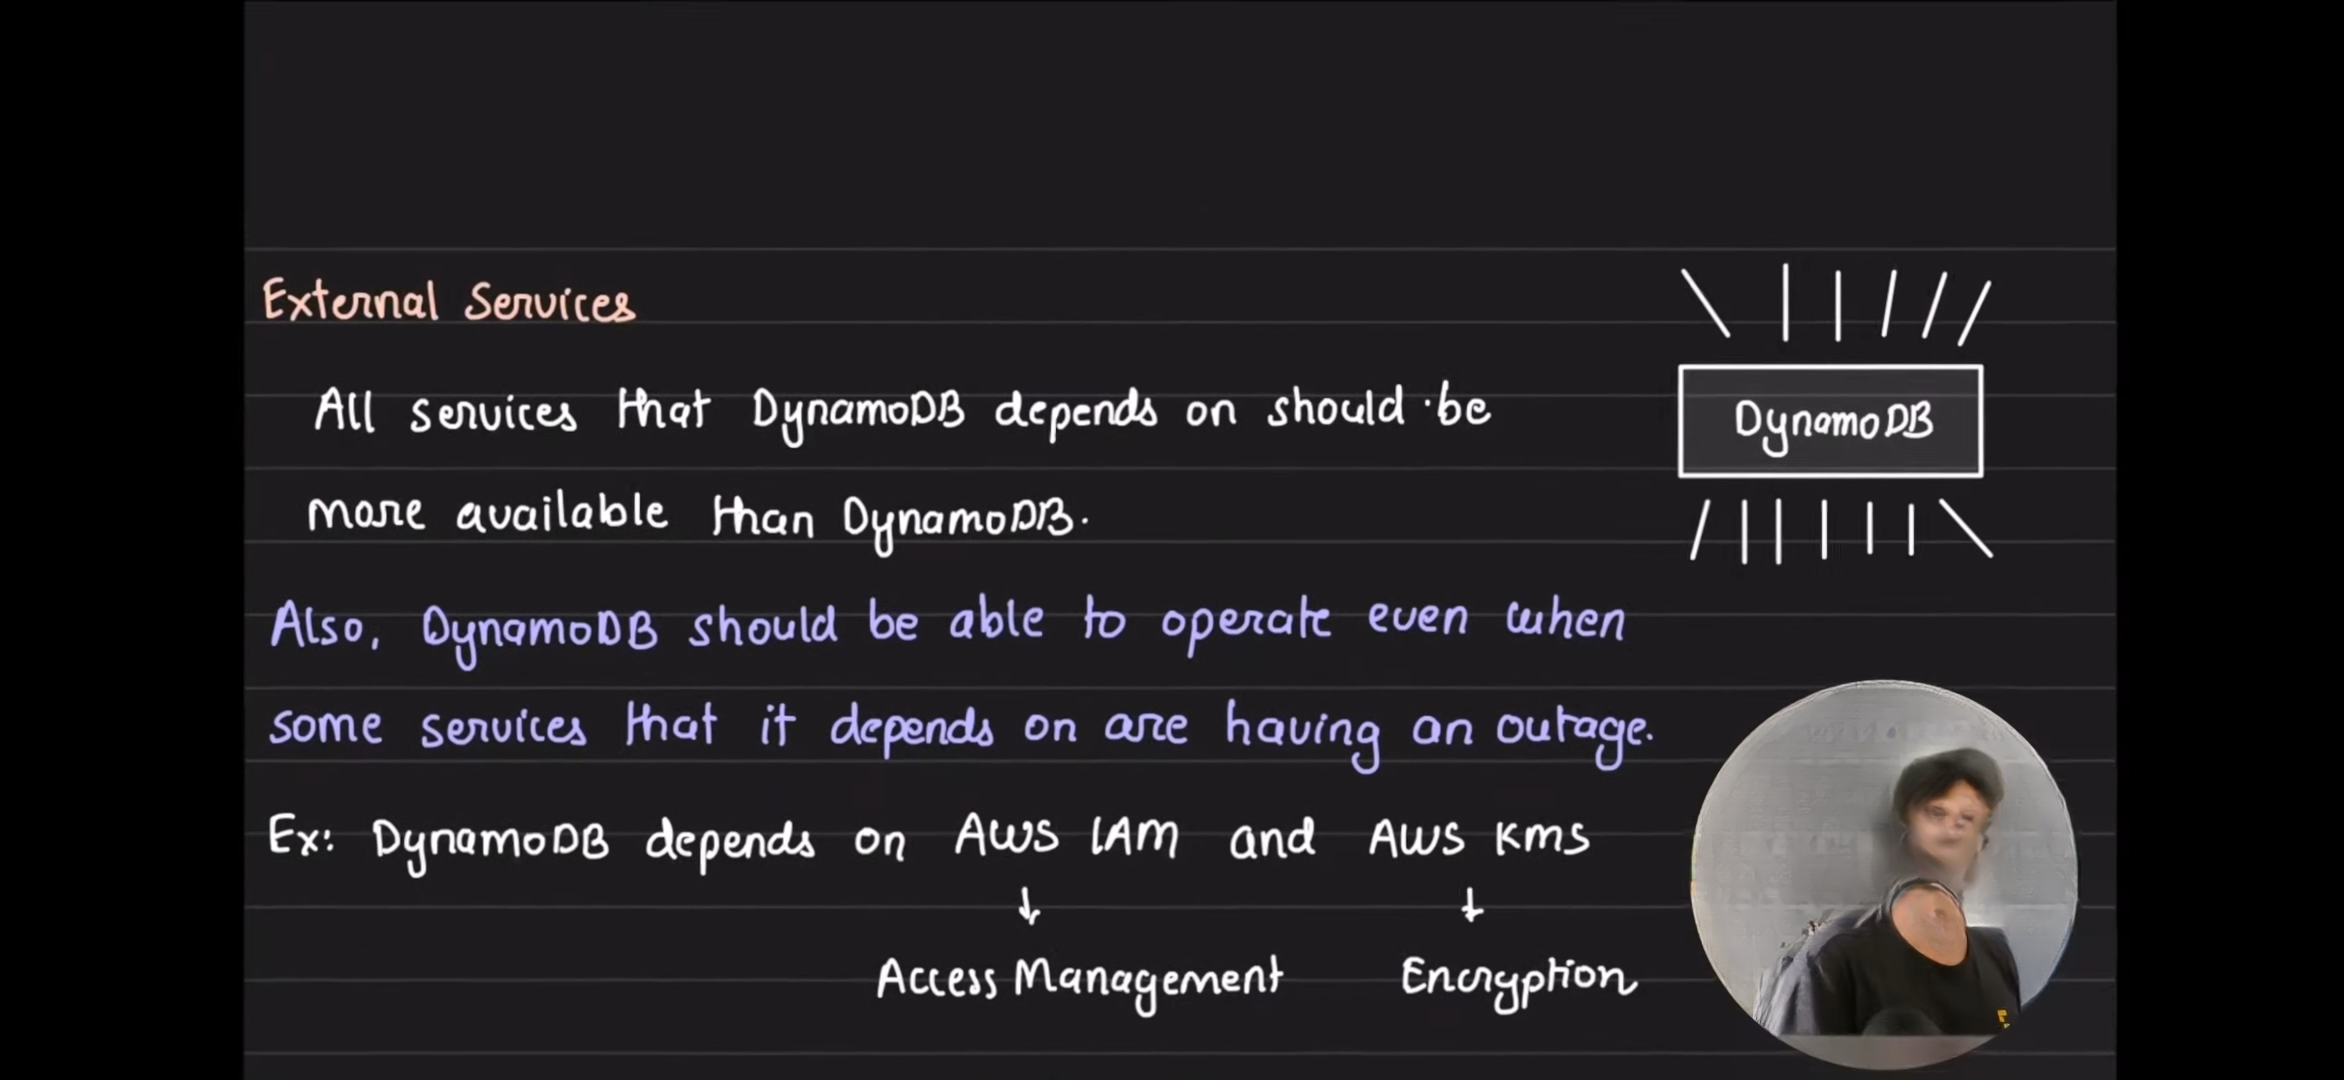 External Services
All services that DynamoDB depends on should be
DynamoDB
more available than DynamoDB.
Also, DynamoDB should be able to operate even when
some services that it depends on are having an outage.
Ex: DynamoDB depends on AWS IAM and AWS KMS
Access Management Encryption